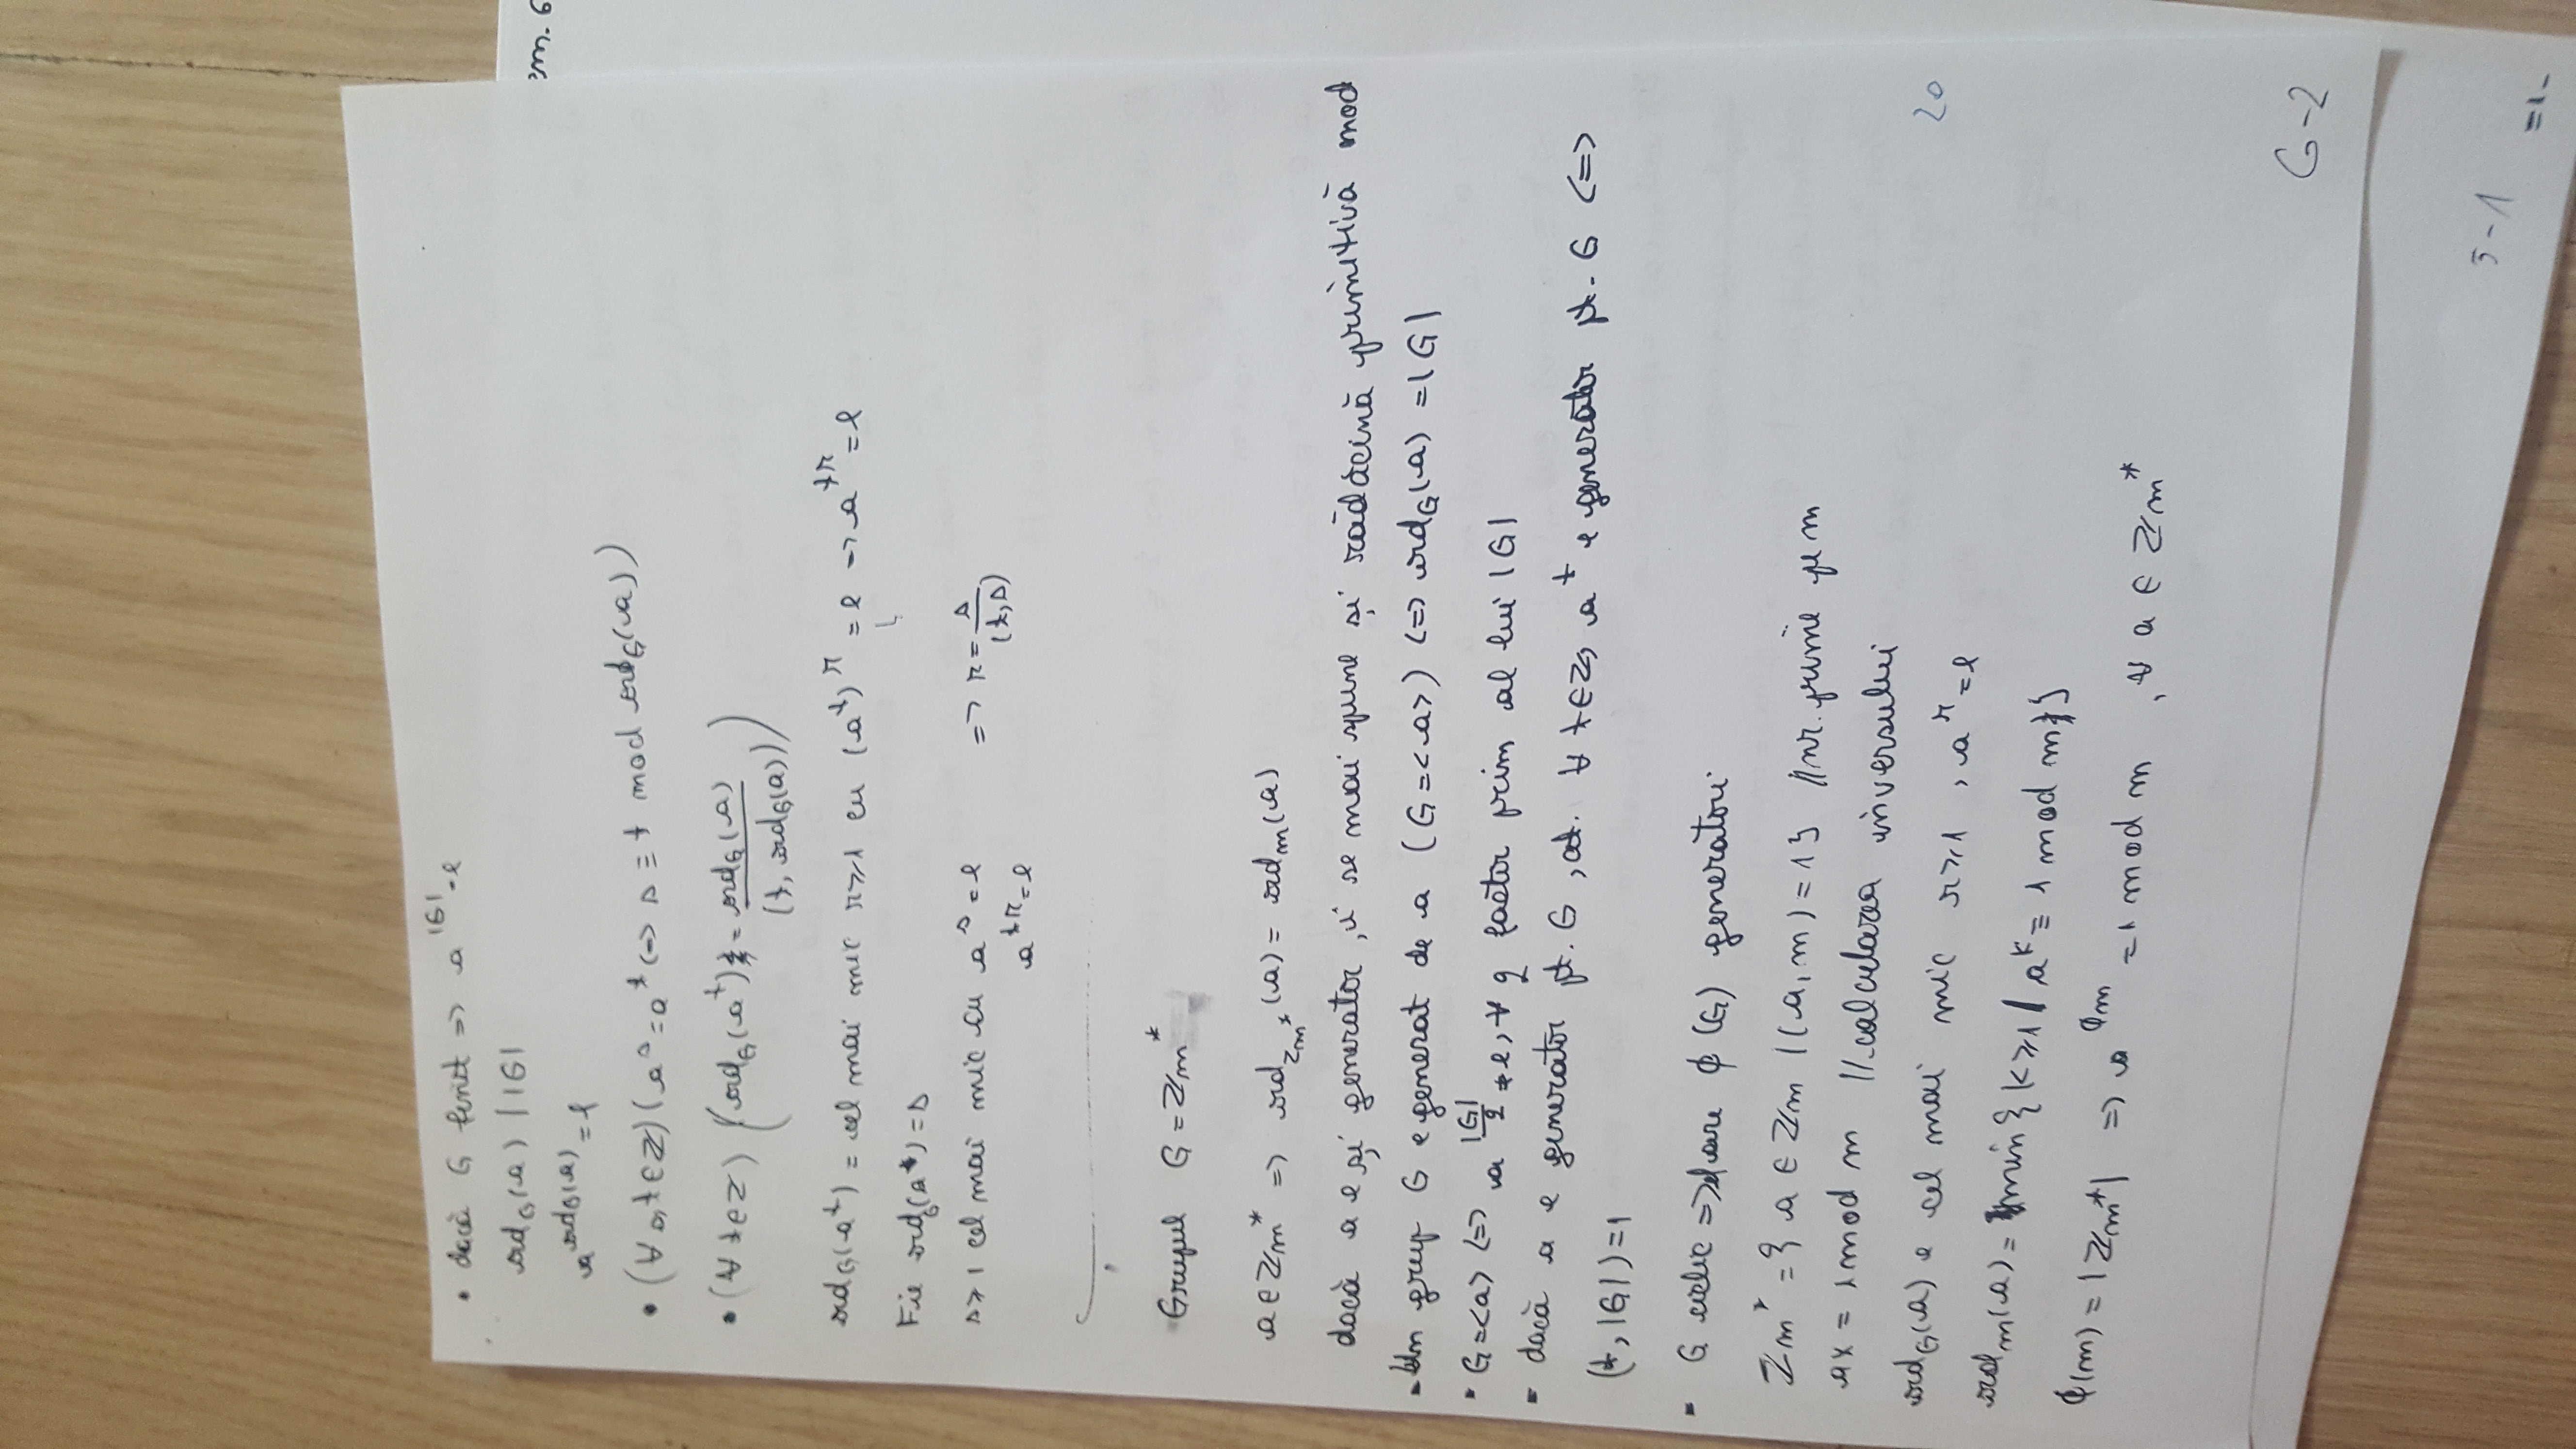 • dacă G finit => a^|G| = e
ord_G(a) | |G|
a^ord_G(a) = e
• (∀ s,t∈Z)(a^s = a^t <=> s ≡ t mod ord_G(a))
• (∀ t∈Z) (ord_G(a^t) = ord_G(a) / (t, ord_G(a)))
ord_G(a^t) = cel mai mic r≥1 cu (a^t)^r = e => a^tr = e
Fie ord_G(a) = s
s≥1 cel mai mic cu a^s = e => r = s / (t,s)
a^tr = e
Grupul G = Zm*
a∈Zm* => ord_Zm*(a) = ord_m(a)
dacă a e și generator, i se mai spune și rădăcină primitivă mod
- Un grup G e generat de a (G=<a>) <=> ord_G(a) = |G|
• G=<a> <=> a^(|G|/q) ≠ e, ∀ q factor prim al lui |G|
- dacă a e generator pt. G, at. ∀ t∈Z, a^t e generator pt. G <=>
(t, |G|) = 1
- G ciclic => el are ϕ(G) generatori
Zm* = {a ∈ Zm | (a, m) = 1} // nr. prime pe m
ax = 1 mod m // calcularea inversului
ord_G(a) e cel mai mic r≥1, a^r = e
20
ord_m(a) = min{k≥1 | a^k ≡ 1 mod m}
ϕ(m) = |Zm*| => a^ϕm = 1 mod m, ∀ a ∈ Zm*
G-2
5-1
=1-
em. 6